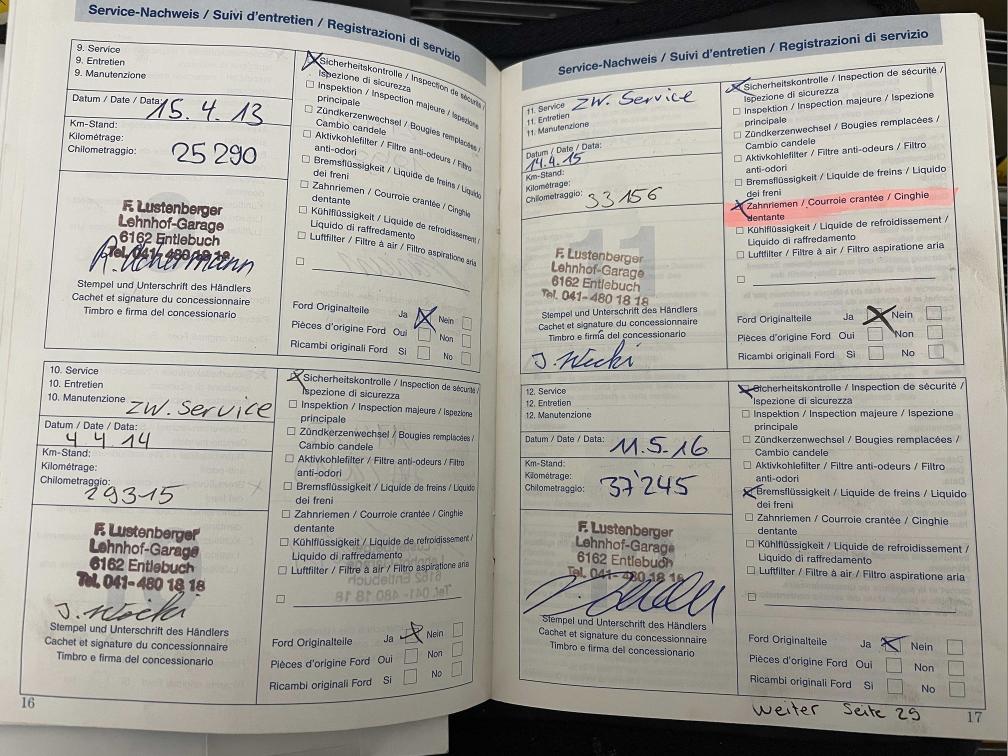 Service-Nachweis / Suivi d'entretien / Registrazioni di servizio
9. Service
9. Entretien
9. Manutenzione
Datum / Date / Data: 15.4.13
Km-Stand:
Kilométrage:
Chilometraggio: 25290
F. Lustenberger
Lehnhof-Garage
6162 Entlebuch
Tel. 041-480 18 18
Stempel und Unterschrift des Händlers
Cachet et signature du concessionnaire
Timbro e firma del concessionario
Sicherheitskontrolle / Inspection de sécurité /
Ispezione di sicurezza
Inspektion / Inspection majeure / Ispezione
principale
Zündkerzenwechsel / Bougies remplacées /
Cambio candele
Aktivkohlefilter / Filtre anti-odeurs / Filtro
anti-odori
Bremsflüssigkeit / Liquide de freins / Liquido
dei freni
Zahnriemen / Courroie crantée / Cinghie
dentante
Kühlflüssigkeit / Liquide de refroidissement /
Liquido di raffredamento
Luftfilter / Filtre à air / Filtro aspiratione aria
Ford Originalteile Ja Nein
Pièces d'origine Ford Oui Non
Ricambi originali Ford Si No
10. Service
10. Entretien
10. Manutenzione ZW. Service
Datum / Date / Data:
4.4.14
Km-Stand:
Kilométrage:
Chilometraggio:
29315
F. Lustenberger
Lehnhof-Garage
6162 Entlebuch
Tel. 041-480 18 18
Stempel und Unterschrift des Händlers
Cachet et signature du concessionnaire
Timbro e firma del concessionario
Sicherheitskontrolle / Inspection de sécurité /
Ispezione di sicurezza
Inspektion / Inspection majeure / Ispezione
principale
Zündkerzenwechsel / Bougies remplacées /
Cambio candele
Aktivkohlefilter / Filtre anti-odeurs / Filtro
anti-odori
Bremsflüssigkeit / Liquide de freins / Liquido
dei freni
Zahnriemen / Courroie crantée / Cinghie
dentante
Kühlflüssigkeit / Liquide de refroidissement /
Liquido di raffredamento
Luftfilter / Filtre à air / Filtro aspiratione aria
Ford Originalteile Ja Nein
Pièces d'origine Ford Oui Non
Ricambi originali Ford Si No
16
Service-Nachweis / Suivi d'entretien / Registrazioni di servizio
11. Service ZW. Service
11. Entretien
11. Manutenzione
Datum / Date / Data:
14.4.15
Km-Stand:
Kilométrage:
Chilometraggio: 33156
11
F. Lustenberger
Lehnhof-Garage
6162 Entlebuch
Tel. 041-480 18 18
Stempel und Unterschrift des Händlers
Cachet et signature du concessionnaire
Timbro e firma del concessionario
Sicherheitskontrolle / Inspection de sécurité /
Ispezione di sicurezza
Inspektion / Inspection majeure / Ispezione
principale
Zündkerzenwechsel / Bougies remplacées /
Cambio candele
Aktivkohlefilter / Filtre anti-odeurs / Filtro
anti-odori
Bremsflüssigkeit / Liquide de freins / Liquido
dei freni
Zahnriemen / Courroie crantée / Cinghie
dentante
Kühlflüssigkeit / Liquide de refroidissement /
Liquido di raffredamento
Luftfilter / Filtre à air / Filtro aspiratione aria
Ford Originalteile Ja Nein
Pièces d'origine Ford Oui Non
Ricambi originali Ford Si No
12. Service
12. Entretien
12. Manutenzione
Datum / Date / Data: 11.5.16
Km-Stand:
Kilométrage:
Chilometraggio: 37'245
F. Lustenberger
Lehnhof-Garage
6162 Entlebuch
Tel. 041-480 18 18
Stempel und Unterschrift des Händlers
Cachet et signature du concessionnaire
Timbro e firma del concessionario
Sicherheitskontrolle / Inspection de sécurité /
Ispezione di sicurezza
Inspektion / Inspection majeure / Ispezione
principale
Zündkerzenwechsel / Bougies remplacées /
Cambio candele
Aktivkohlefilter / Filtre anti-odeurs / Filtro
anti-odori
Bremsflüssigkeit / Liquide de freins / Liquido
dei freni
Zahnriemen / Courroie crantée / Cinghie
dentante
Kühlflüssigkeit / Liquide de refroidissement /
Liquido di raffredamento
Luftfilter / Filtre à air / Filtro aspiratione aria
Ford Originalteile Ja Nein
Pièces d'origine Ford Oui Non
Ricambi originali Ford Si No
weiter Seite 29
17